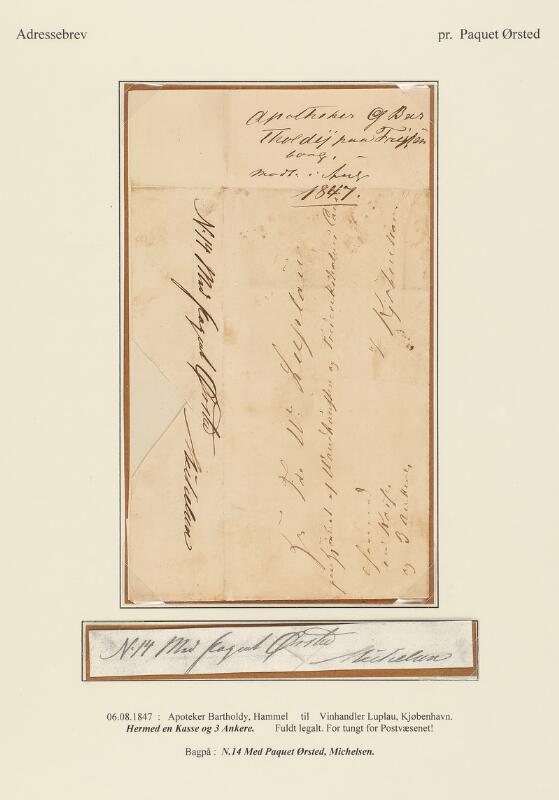 Adressebrev
pr. Paquet Ørsted
Apotheker G Bar
tholdij paa Frijsen
borg.
modt. i Aug
1847.
N. 14 Med Paquet Ørsted
Michelsen
Hr Fdr Wm Luplau
Kjøbenhavn
en Kasse
og 3 Ankere
N. 14 Med Paquet Ørsted
Michelsen
06.08.1847 : Apoteker Bartholdy, Hammel til Vinhandler Luplau, Kjøbenhavn.
Hermed en Kasse og 3 Ankere. Fuldt legalt. For tungt for Postvæsenet!
Bagpå : N.14 Med Paquet Ørsted, Michelsen.